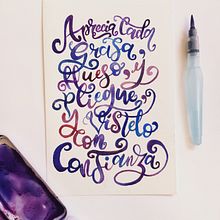 Aprecia Cada
Grasa
Hueso, y
pliegue,
y Vístelo
con
Confianza